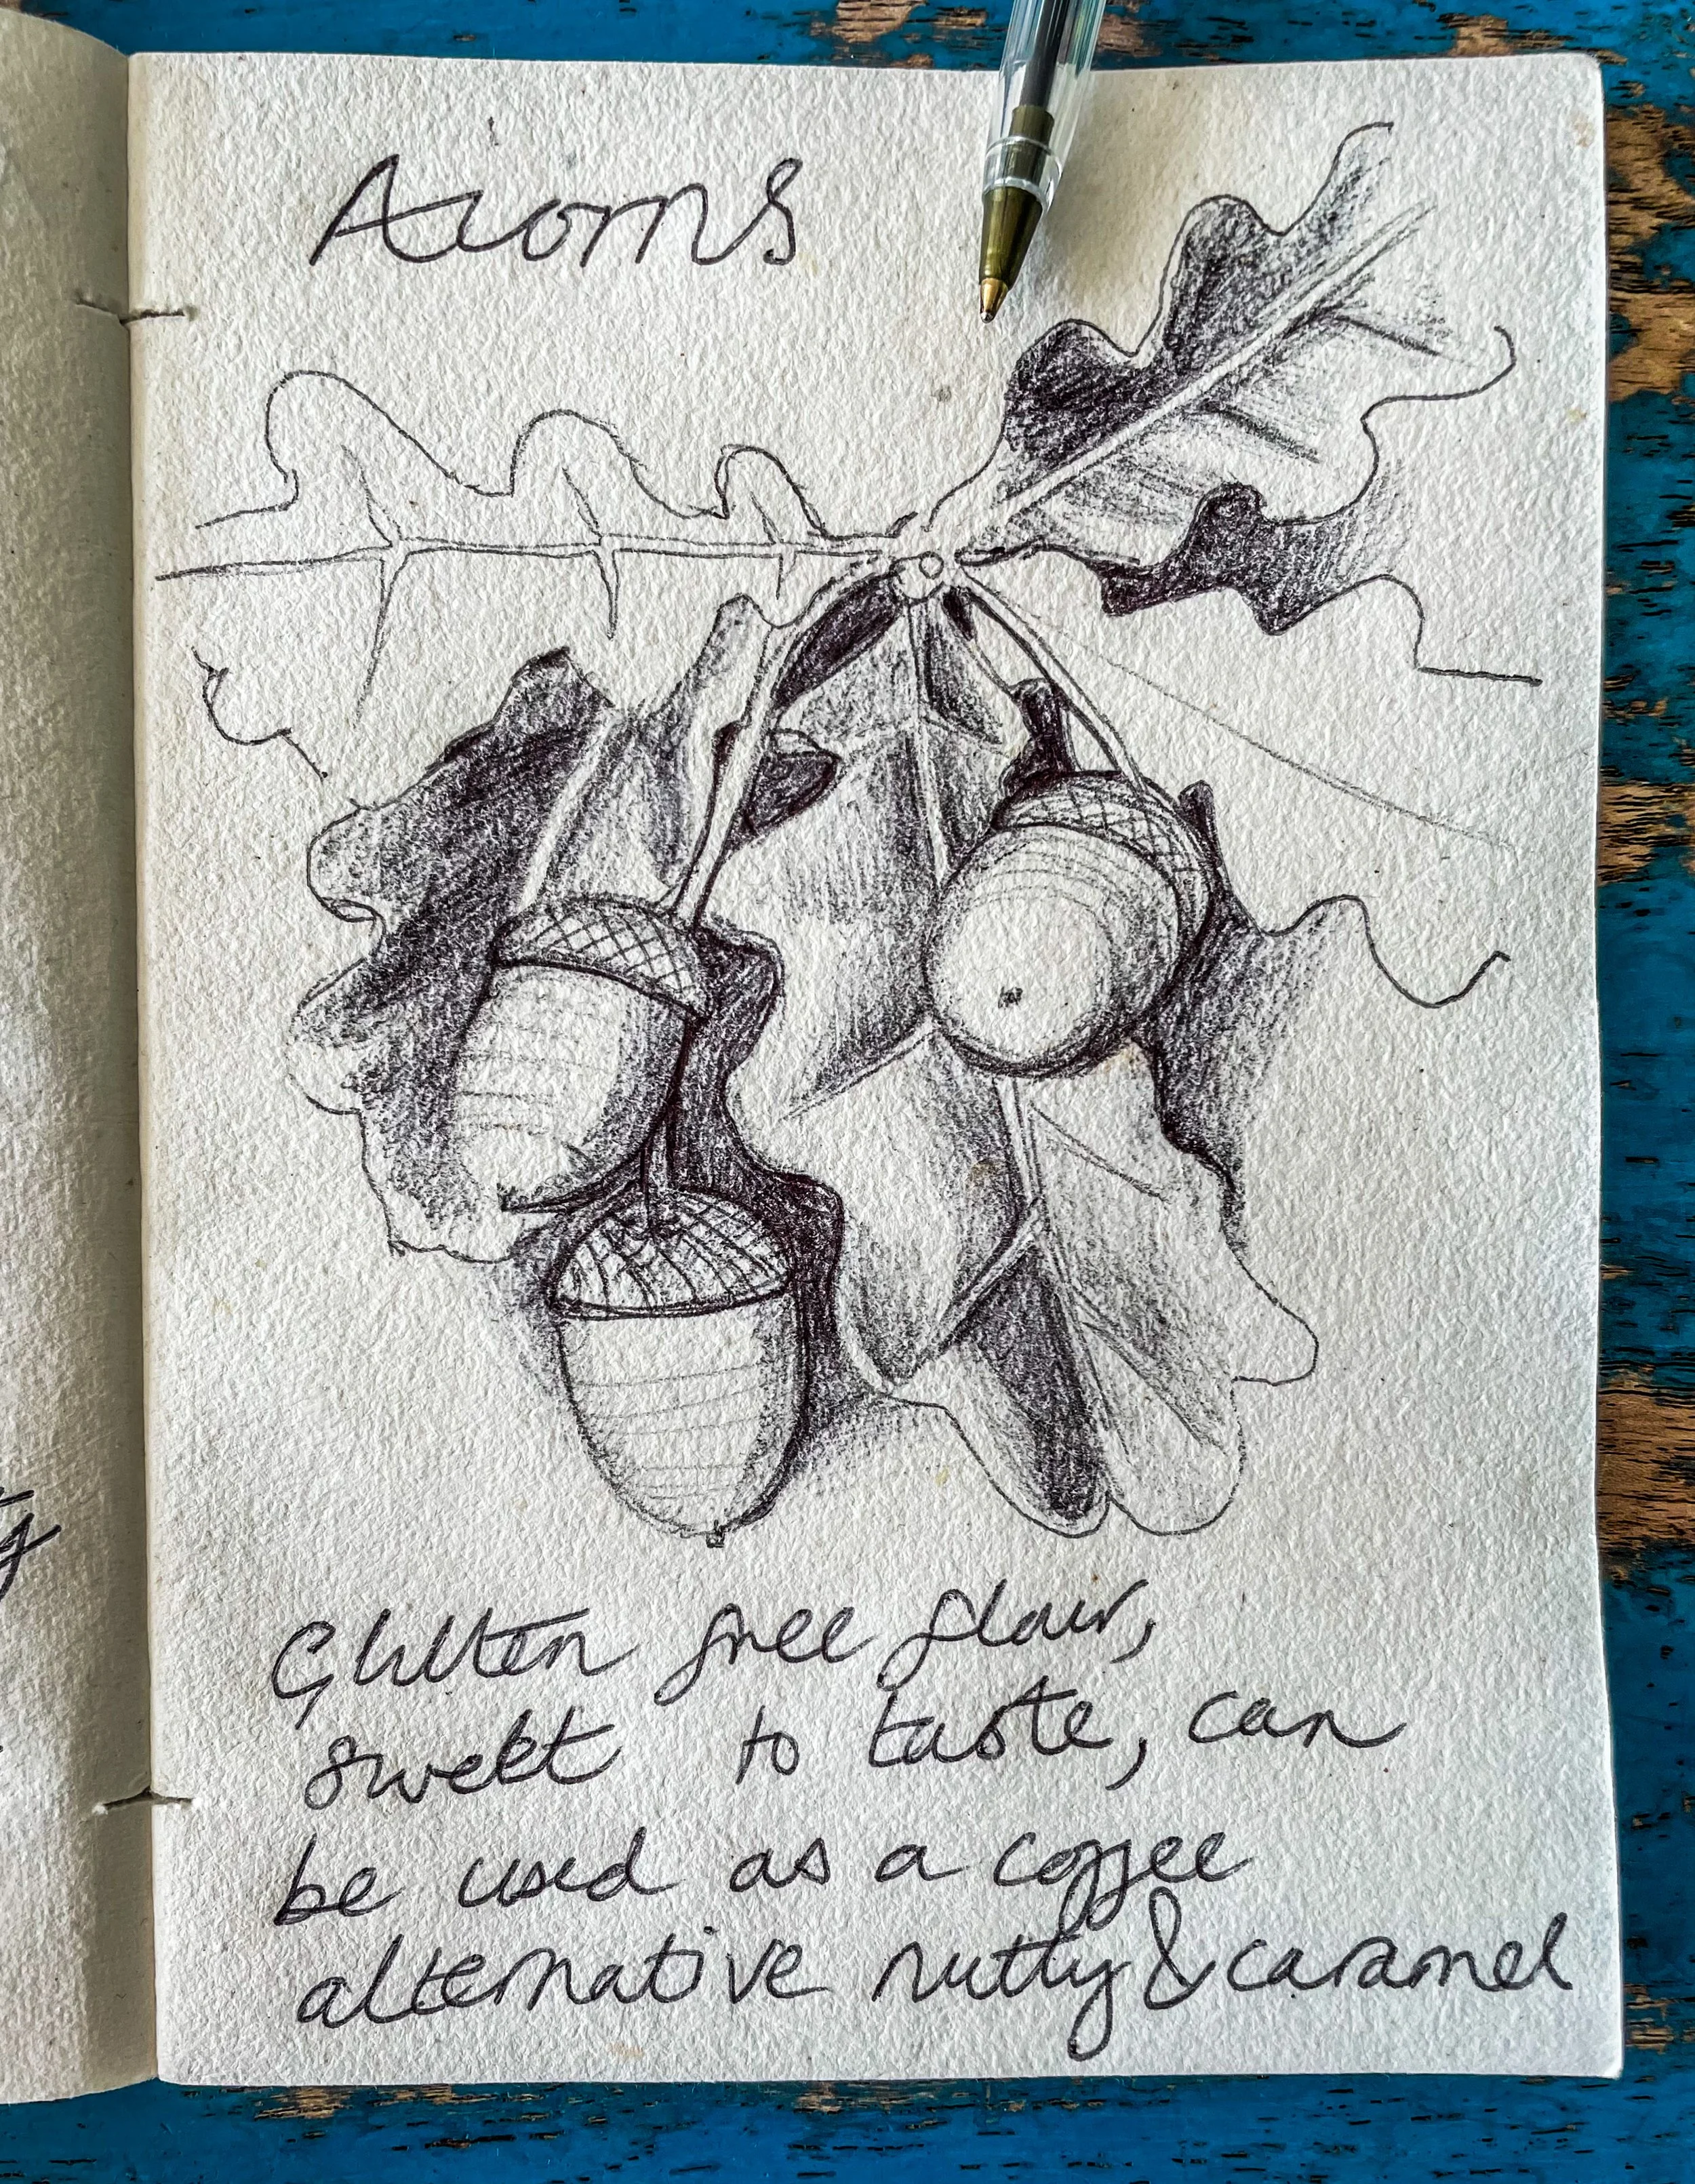 Acorns
Glutten free flour,
sweet to taste, can
be used as a coffee
alternative nutty & caramel